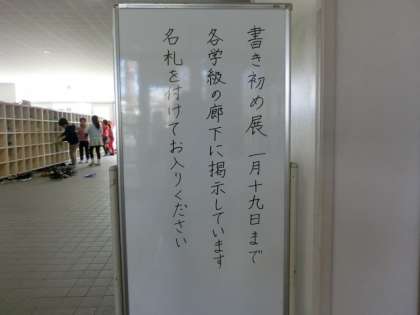 書き初め展 一月十九日まで
各学級の廊下に掲示しています
名札を付けてお入りください